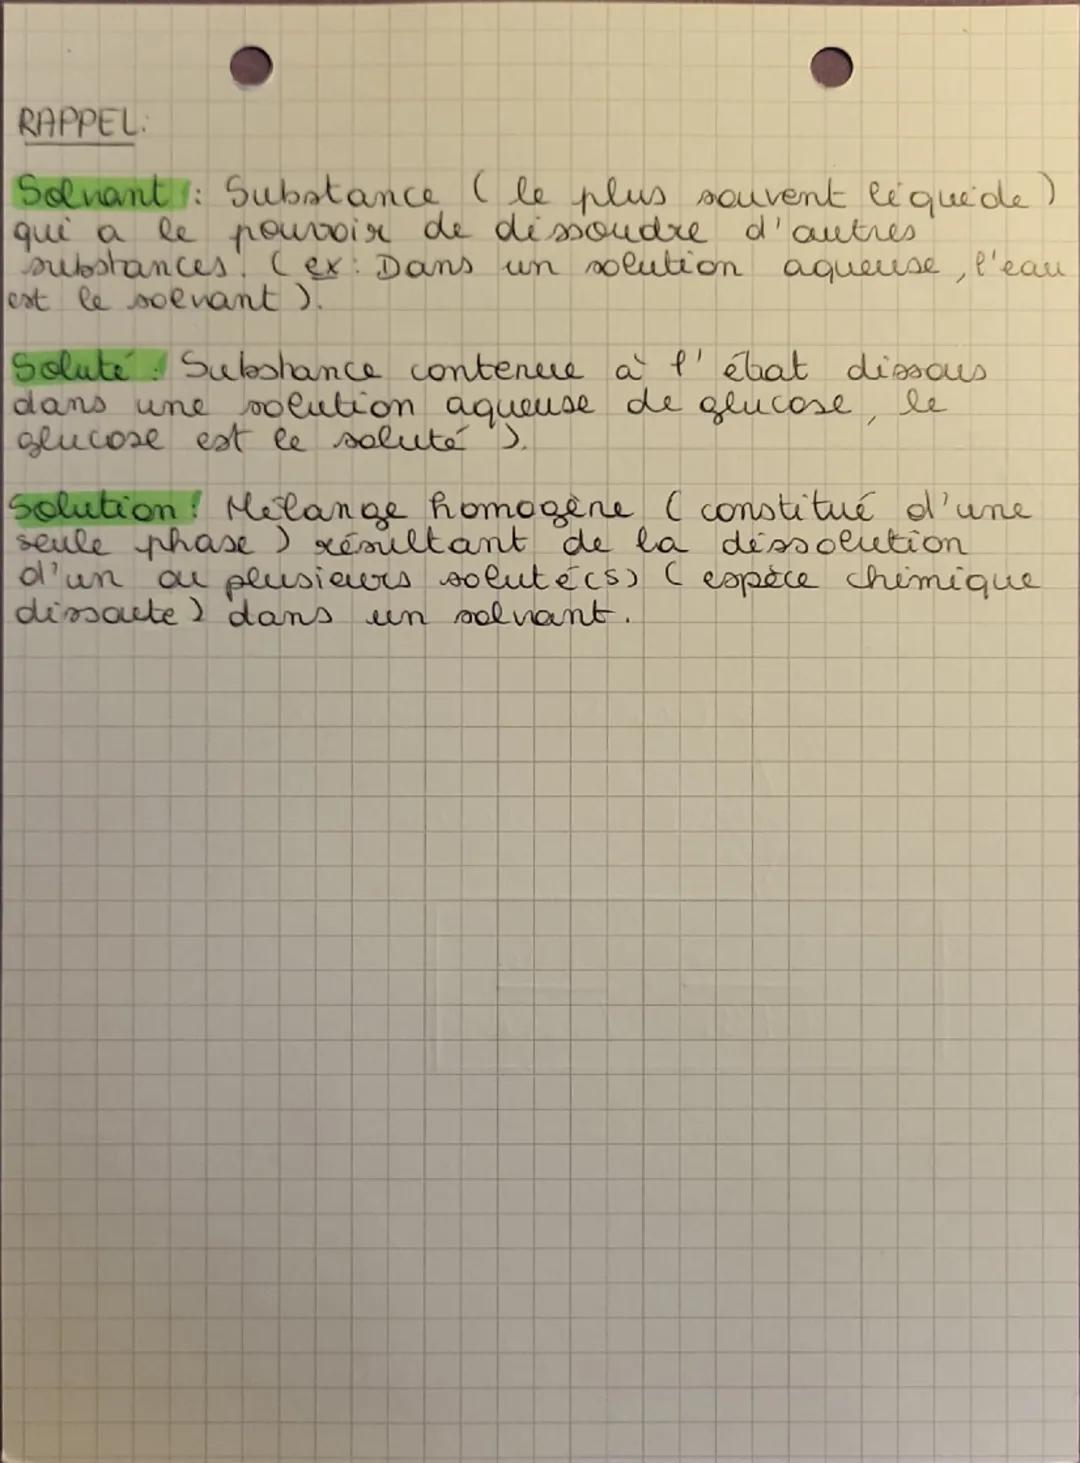 RAPPEL:
Solvant : Substance ( le plus souvent liquide )
qui a le pouvoir de dissoudre d'autres
substances. ( ex : Dans un solution aqueuse, l'eau
est le solvant ).
Soluté : Substance contenue à l'état dissous
dans une solution aqueuse de glucose, le
glucose est le soluté ).
Solution : Mélange homogène ( constitué d'une
seule phase ) résultant de la dissolution
d'un ou plusieurs soluté(s) ( espèce chimique
dissoute ) dans un solvant.